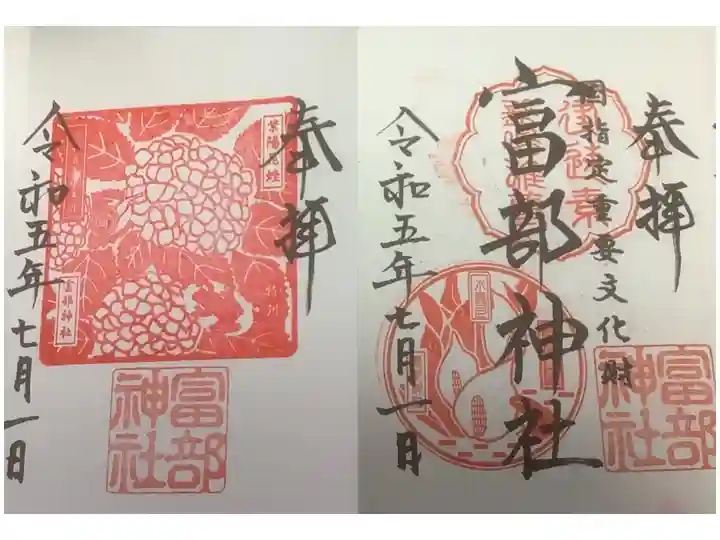 奉拝
富部神社
令和五年七月一日
富部
神社
奉拝
国指定重要文化財
富部神社
令和五年七月一日
富部
神社